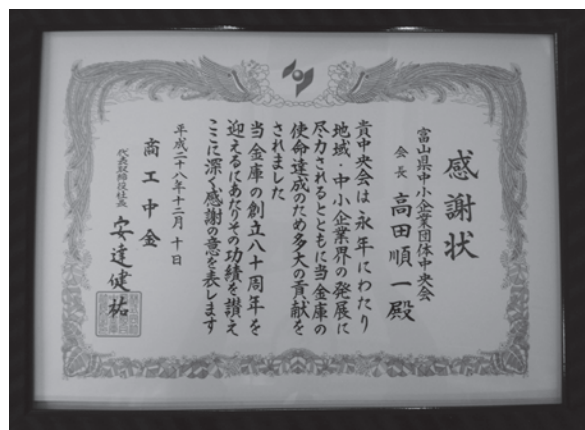 感謝状
富山県中小企業団体中央会
会長 高田順一殿
貴中央会は永年にわたり
地域・中小企業界の発展に
尽力されるとともに当金庫の
使命達成のため多大の貢献を
されました
当金庫の創立八十周年を
迎えるにあたりその功績を讃え
ここに深く感謝の意を表します
平成二十八年十二月十日
商工中金
代表取締役社長 安達健祐